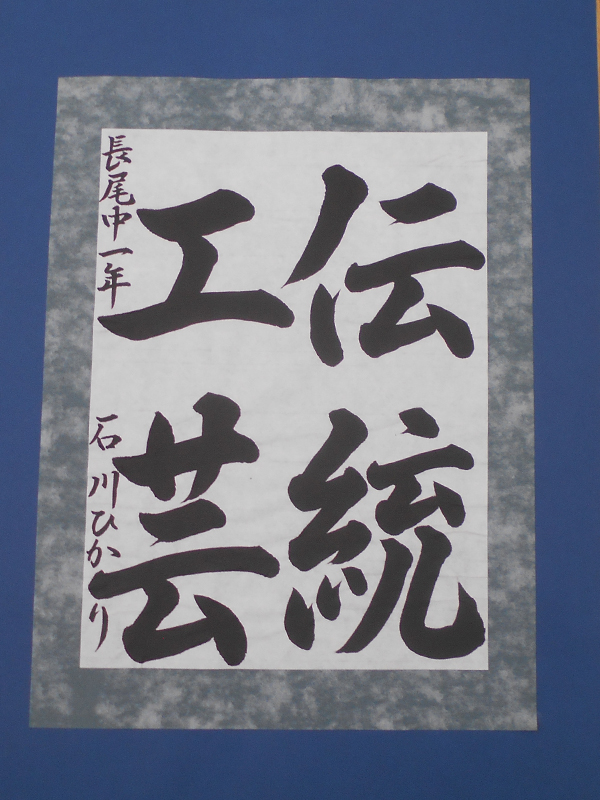 伝統
工芸
長尾中一年
石川ひかり